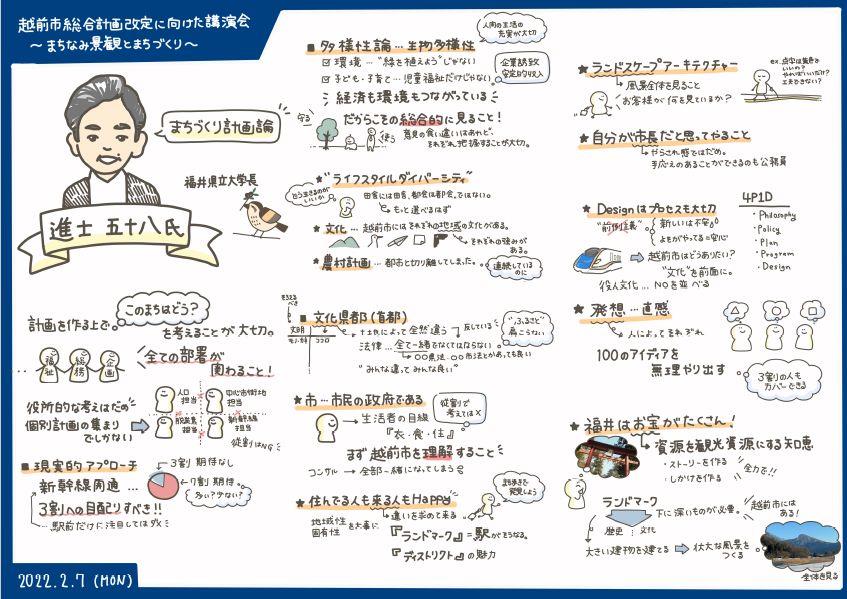 越前市総合計画改定に向けた講演会
～まちなみ景観とまちづくり～
まちづくり計画論
福井県立大学長
進士 五十八 氏
計画を作る上で
このまちはどう？
を考えることが大切。
福祉
総務
企画
全ての部署が
関わること！
役所的な考えはだめ
個別計画の集まり
でしかない
人口
担当
中心市街地
担当
脱炭素
担当
新幹線
担当
従割はNG
■現実的アプローチ
新幹線開通…
3割 期待なし
7割 期待。
多い？少ない？
3割への目配りすべき!!
…駅前だけに注目してはダメ
2022.2.7 (MON)
■多様性論…生物多様性
人間の生活の
充実が大切
環境…“緑を植えよう”じゃない
子ども・子育て…児童福祉だけじゃない。
企業誘致
安定的収入
経済も環境もつながっている
だからこその総合的に見ること！
守る
使う
意見の食い違いはあれど、
それぞれ把握することが大切。
★“ライフスタイルダイバーシティ”
どう生きるのが
いいか
田舎には田舎、都会は都会。ではない。
もっと選べるはず
★文化…越前市にはそれぞれの地域の文化がある。
それぞれの強みが
ある。
★農村計画…都市と切り離してしまった。
連続している
のに
■文化県都（首都）
文明
モノ・カネ
ココロ
土土氏によって全然違う
反している
法律…全て一緒でなくてはならない
〇〇県法・〇〇市法とかあっても良い
“みんな違ってみんな良い”
“ふるさと”
肩こうない
★市…市民の政府である
従割で
考えては×
生活者の目線
『衣・食・住』
まず越前市を理解すること
コンサル→全部一緒になってしまう
★住んでる人も来る人もHappy
まち歩きで
発見しよう
地域性
固有性
を大事に
違いを求めて来る
『ランドマーク』＝駅がそうなる。
『ディストリクト』の魅力
★ランドスケープアーキテクチャー
風景全体を見ること
お客様が何を見ているか？
ex.点字は黄色で
いいの？
やればいいだけ？
工夫できない？
★自分が市長だと思ってやること
やらされ感ではだめ。
手応えのあることができるのも公務員
★Designはプロセスも大切
“前例主義”
新しいは不安
よそがやってる＝安心
越前市はどうありたい？
“文化”を前面に。
役人文化…NOを並べる
4P1D
・Philosophy
・Policy
・Plan
・Program
・Design
★発想…直感
人によってそれぞれ
100のアイディアを
無理やり出す
3割の人も
カバーできる
★福井はお宝がたくさん！
資源を観光資源にする知恵
・ストーリーを作る
・しかけを作る
全力で!!
ランドマーク
下に深いものが必要。
越前市には
ある！
歴史
文化
大きい建物を建てる
壮大な風景を
つくる
全体を見る